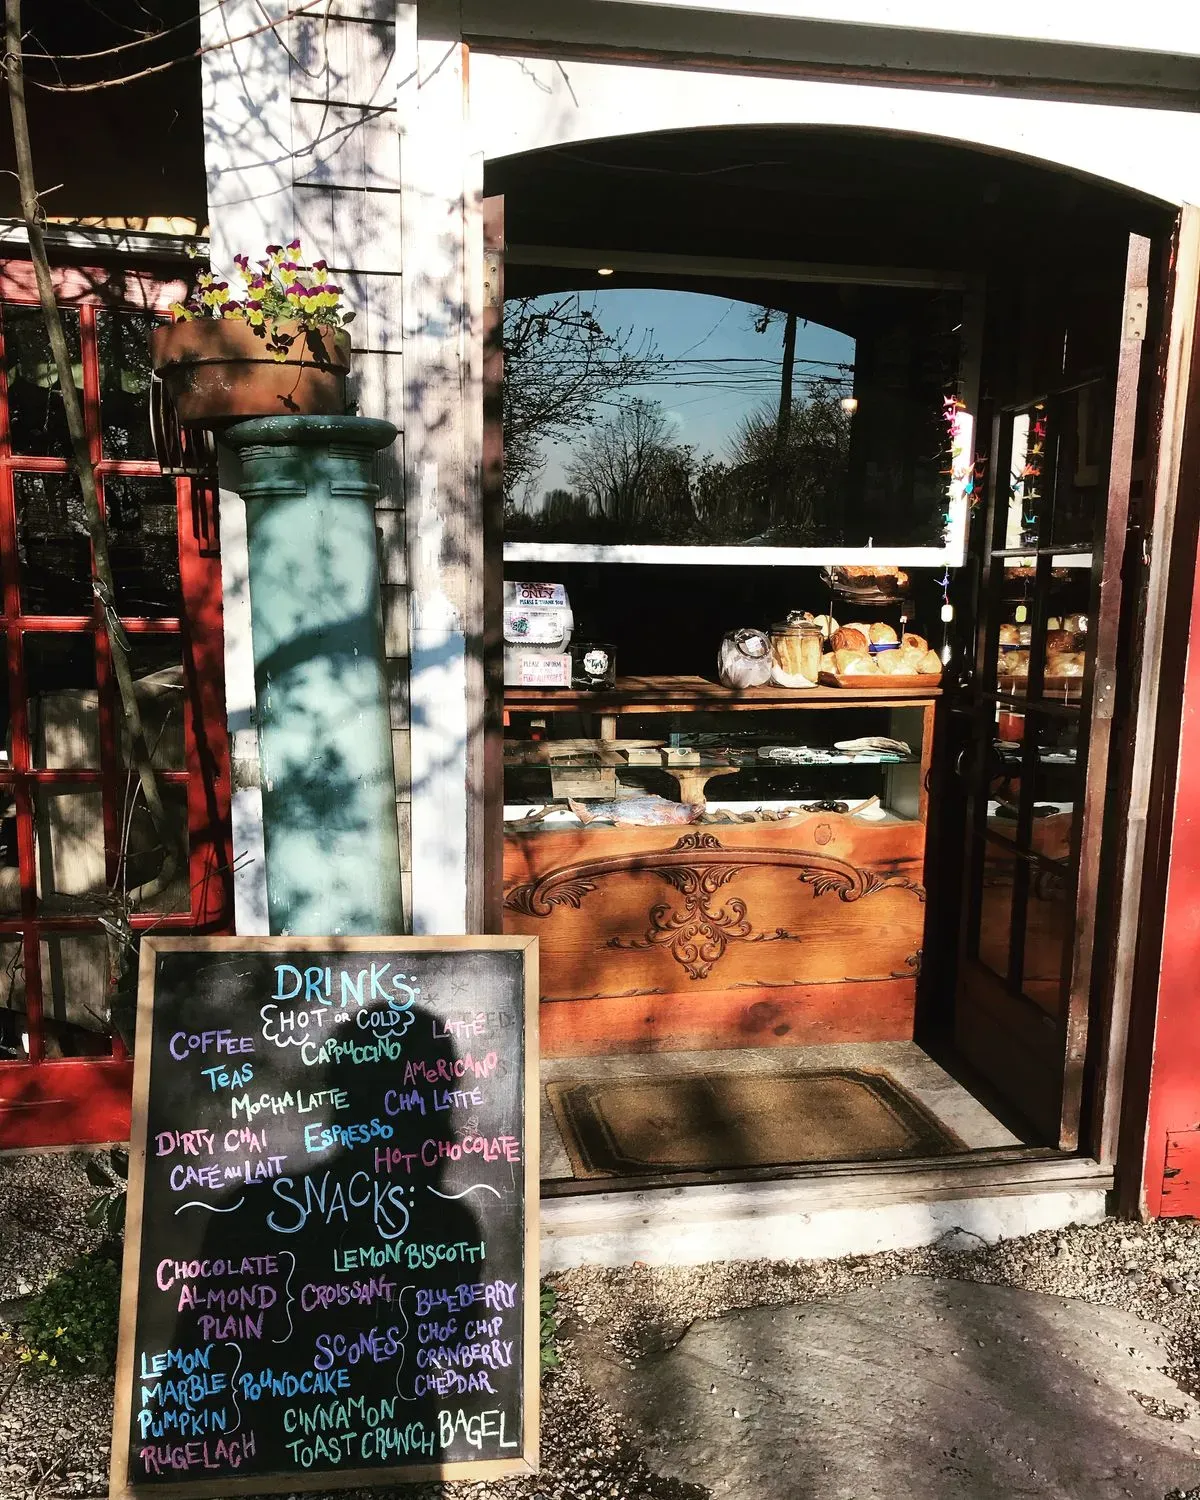 CASH
ONLY
PLEASE & THANK YOU!
PLEASE INFORM
FOOD ALLERGIES
DRINKS:
HOT OR COLD
COFFEE
CAPPUCCINO
LATTÉ
TEAS
AMERICANO
MOCHA LATTE
CHAI LATTÉ
DIRTY CHAI
ESPRESSO
HOT CHOCOLATE
CAFÉ AU LAIT
SNACKS:
LEMON BISCOTTI
CHOCOLATE
ALMOND
PLAIN
CROISSANT
SCONES
BLUEBERRY
CHOC CHIP
CRANBERRY
CHEDDAR
LEMON
MARBLE
PUMPKIN
POUNDCAKE
CINNAMON
TOAST CRUNCH
BAGEL
RUGELACH